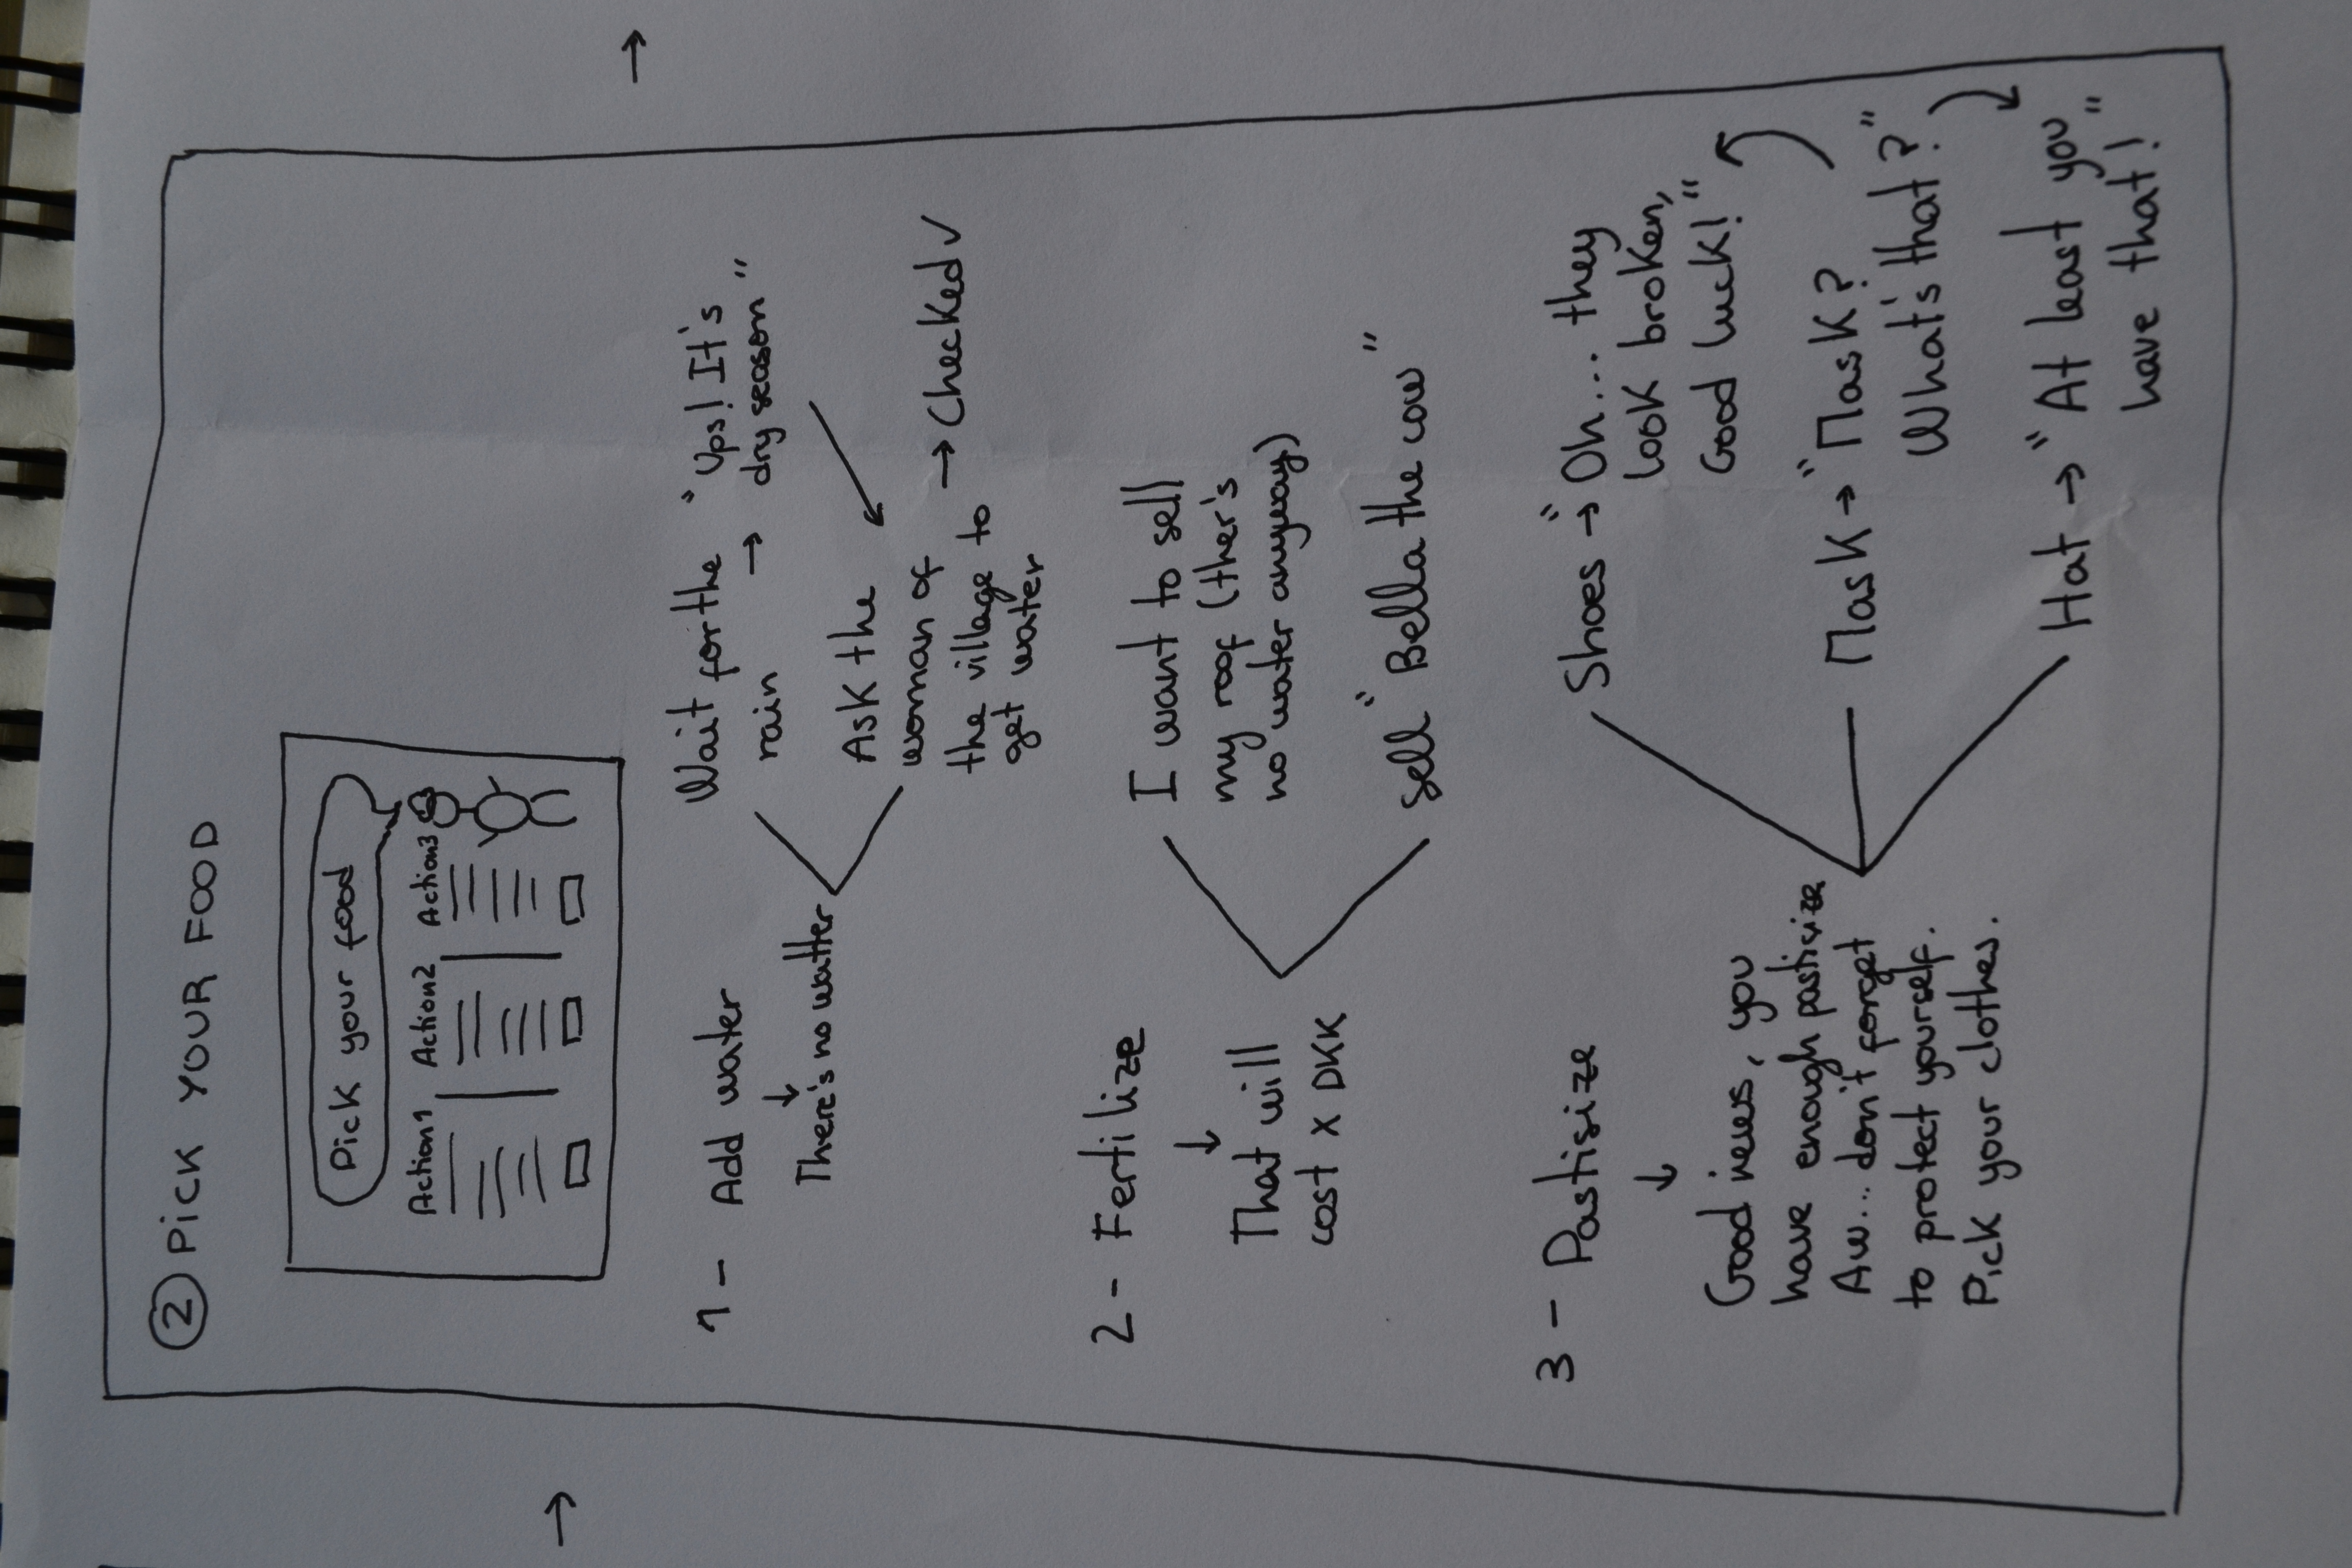 ② PICK YOUR FOOD
Pick your food
Action1 Action2 Action3
1 - Add water
↓
There's no watter
Wait for the
rain
→
"Ups! It's
dry season"
Ask the
woman of
the village to
get water
→ Checked ✓
2 - Fertilize
↓
That will
cost x DKK
I want to sell
my roof (ther's
no water anyway)
sell "Bella the cow"
3 - Pastisize
↓
Good news, you
have enough pasticize
Aw... don't forget
to protect yourself.
Pick your clothes.
Shoes → "Oh... they
look broken,
Good luck!"
Mask → "Mask?
What's that?"
Hat → "At least you
have that!"